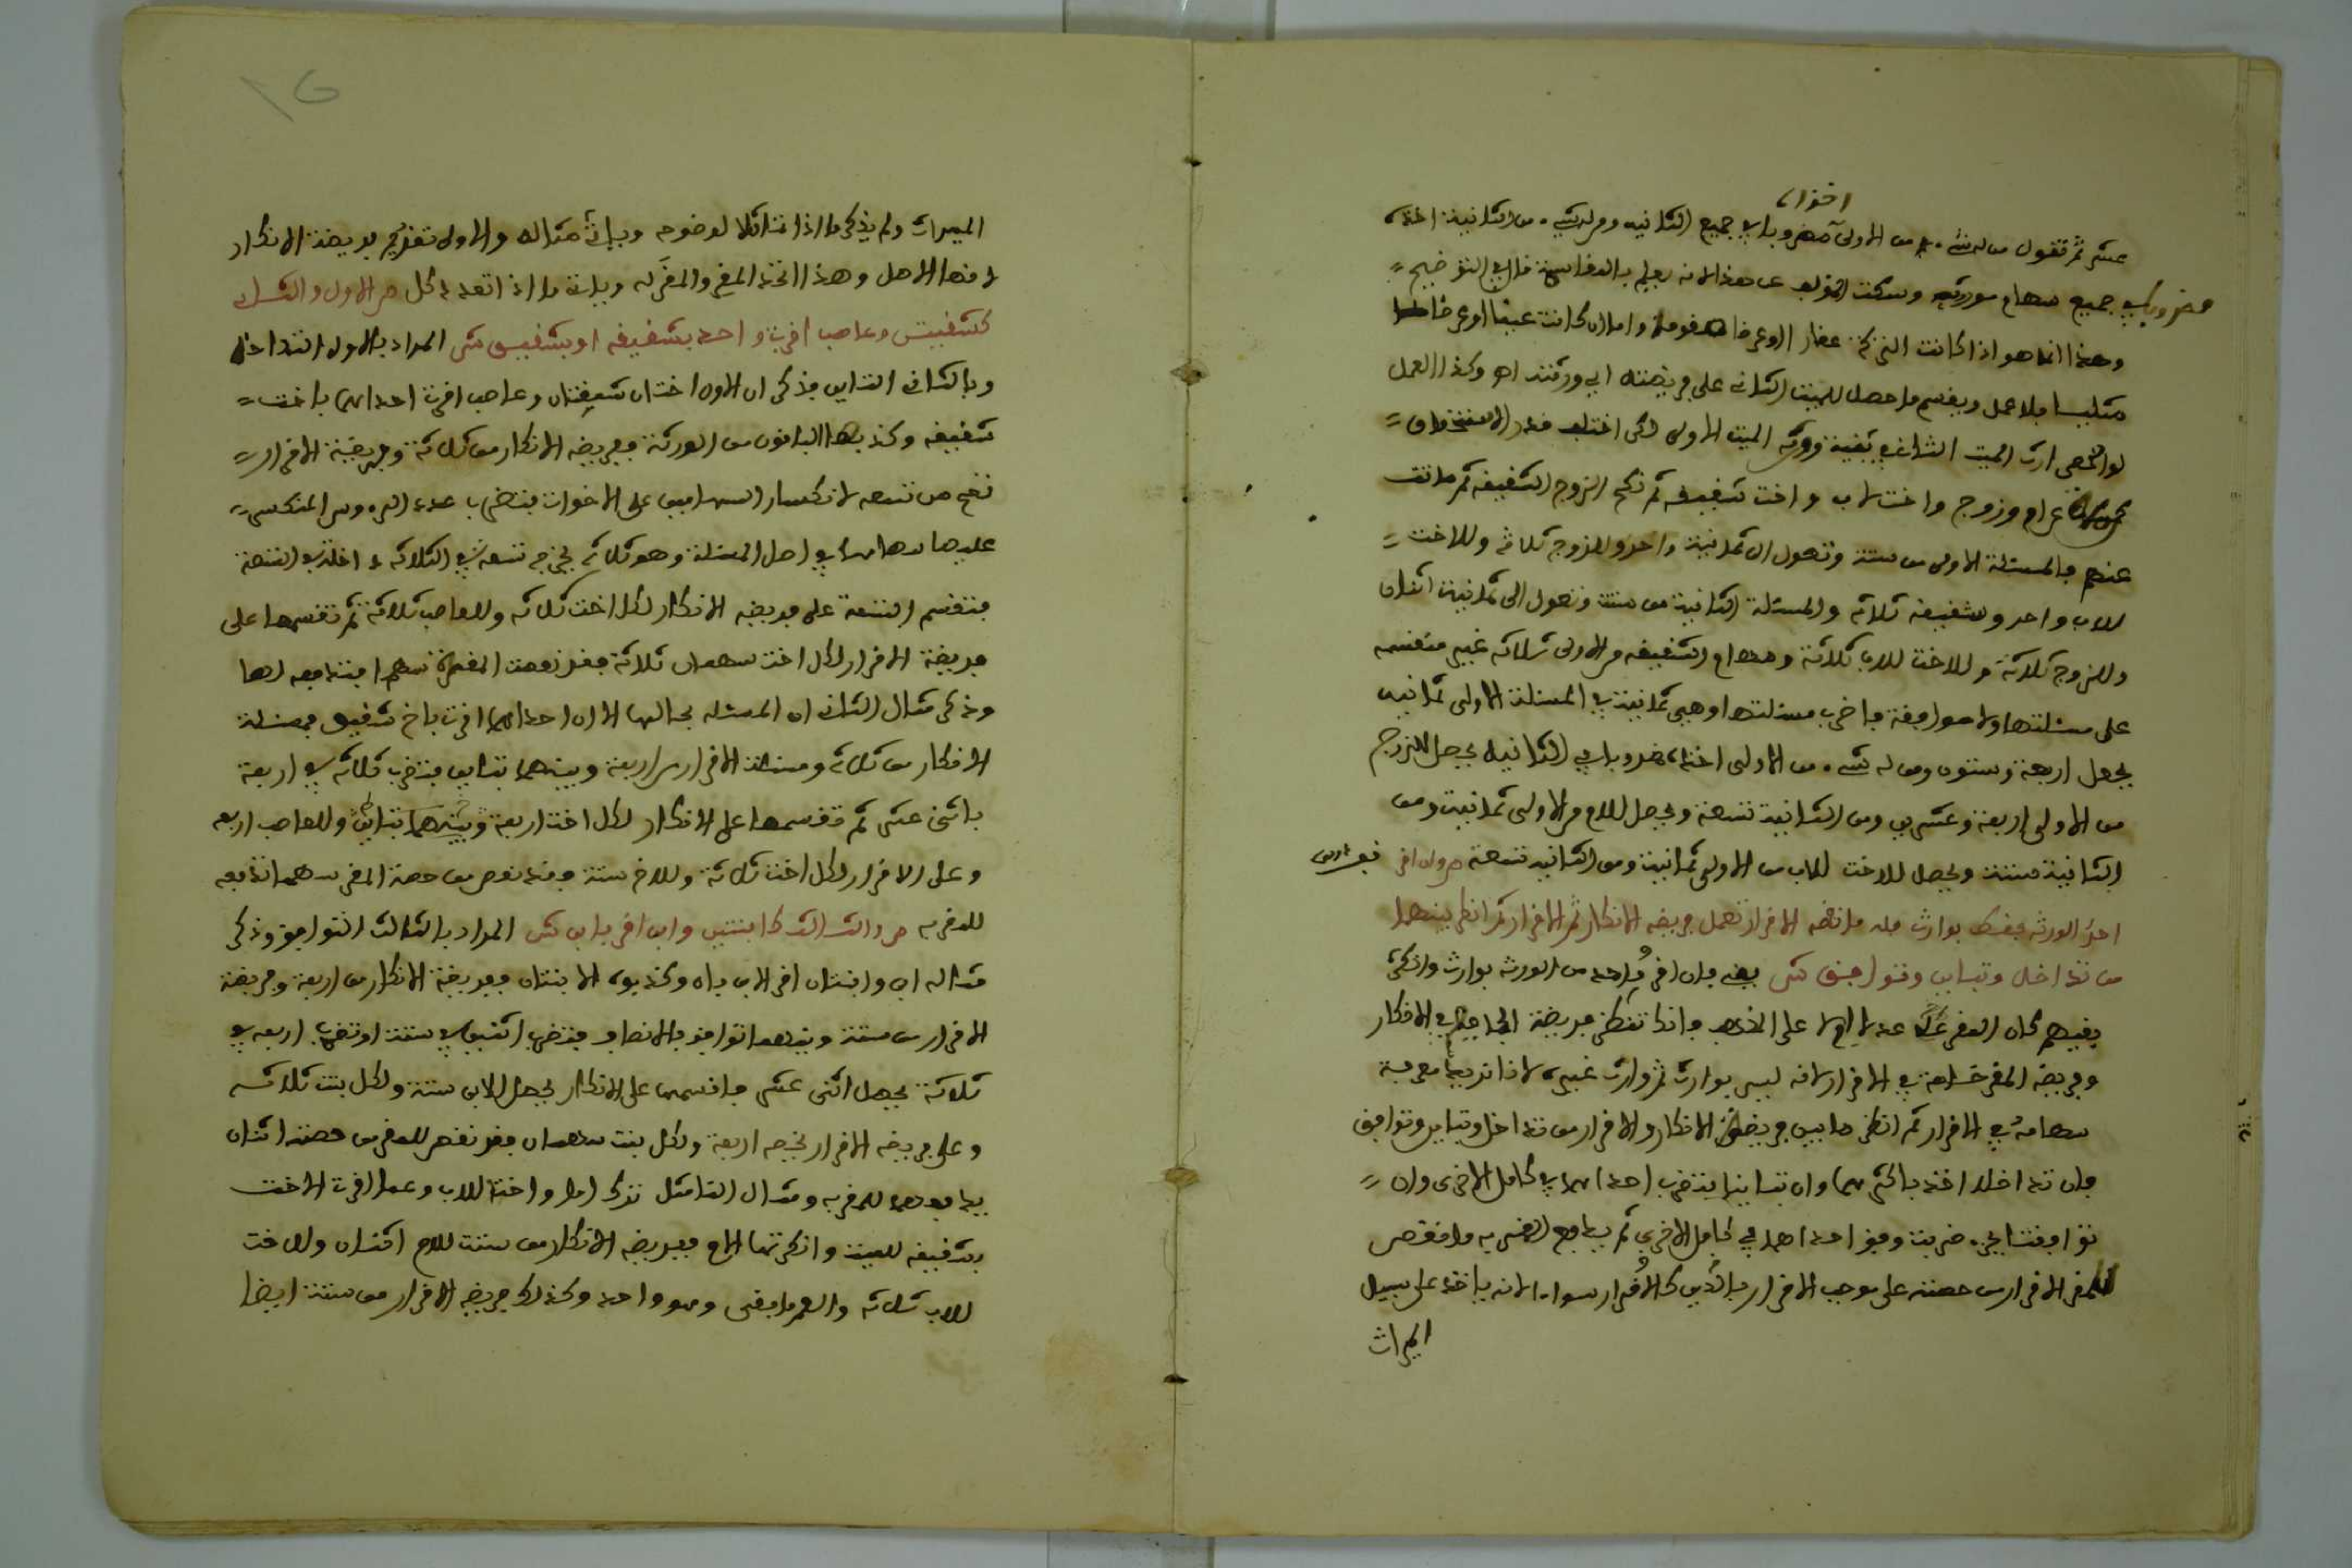 اخذه
عشر ثم تقول من له شيء من الاولى مضروبا في جميع الثانية ومن له شيء من الثانية اخذه
مضروبا في جميع سهام موروثه وسكت المؤلف عن هذا لانه يعلم بالمقايسة قال في التوضيح
وهذا انما هو اذا كانت التركة عقارا او عرضا مقوما واما ان كانت عينا او عرضا
مثليا فلا عمل ويقسم ما حصل للميت الثاني على فريضته اي ورثته اه وكذا العمل
لو انحصر ارث الميت الثاني في بقية ورثة الميت الاول لكن اختلف قدر الاستحقاق
عن ام وزوج واخت لاب واخت شقيقة ثم نكح الزوج الشقيقة ثم ماتت
عنهم فالمسئلة الاولى من ستة وتعول الى ثمانية واحد وللزوج ثلاثة وللاخت
للاب واحد وللشقيقة ثلاثة والمسئلة الثانية من ستة وتعول الى ثمانية اثنان
وللزوج ثلاثة وللاخت للاب ثلاثة وسهام الشقيقة من الاولى ثلاثة غير منقسمة
على مسئلتها ولا موافقة فاضرب مسئلتها وهي ثمانية في المسئلة الاولى ثمانية
يحصل اربعة وستون ومن له شيء من الاولى اخذه مضروبا في الثانية يحصل للزوج
من الاولى اربعة وعشرين ومن الثانية تسعة ويحصل للام من الاولى ثمانية ومن
الثانية ستة ويحصل للاخت للاب من الاولى ثمانية ومن الثانية تسعة ص وان اقر
احد الورثة فقط بوارث فله ما نقصه الاقرار تعمل فريضة الانكار ثم الاقرار ثم انظر بينهما
من تداخل وتباين وتوافق ش يعني فان اقر واحد من الورثة بوارث وانكره
بقيتهم كان المقر عدلا ام لا على المذهب فانك تنظر فريضة الجماعة في الانكار
وفريضة المقر خاصة في الاقرار لانه ليس بوارث ثم وارث غيره لانا نريد معرفة
سهامه في الاقرار ثم انظر ما بين فريضة الانكار والاقرار من تداخل وتباين وتوافق
فان تداخلا اخذ باكثرهما وان تباينا يضرب احداهما في كامل الاخرى وان
توافقتا بجزء ضربت وفق احداهما في كامل الاخرى ثم يدفع المقر به ما نقص
المقر الاقرار من حصته على موجب الاقرار فالدين كالاقرار سواء لانه ياخذه على سبيل
الميراث
الميراث ولم يذكر ما اذا تماثلا لوضوحه وياتي مثاله والاولى تقديم فريضة الانكار
لانها الاصل وهذا اتحد المقر والمقر له وياتي ما اذا تعدد كل ص الاول والثاني
كشقيقتين وعاصب اقرت واحدة بشقيقة او بشقيق ش المراد بالاول التداخل
وبالثاني التباين فذكر ان الاول اختان شقيقتان وعاصب اقرت احداهما باخت
شقيقة وكذبها الباقون من الورثة ففريضة الانكار من ثلاثة وفريضة الاقرار
تصح من تسعة لانكسار السهامين على الاخوات فتضرب عدد الرءوس المنكسر
عليها سهامها في اصل المسئلة وهو ثلاثة يخرج تسعة والثلاثة داخلة في التسعة
فتقسم التسعة على فريضة الانكار لكل اخت ثلاثة وللعاصب ثلاثة ثم تقسمها على
فريضة الاقرار لكل اخت سهمان ثلاثة فقد نقصت المقرة سهما فتدفعه لها
وذكر مثال الثاني ان المسئلة بحالها الا ان احداهما اقرت باخ شقيق فمسئلة
الانكار من ثلاثة ومسئلة الاقرار من اربعة وبينهما تباين فتضرب ثلاثة في اربعة
باثني عشر ثم تقسمها على الانكار لكل اخت اربعة وبينهما تباين وللعاصب اربعة
وعلى الاقرار لكل اخت ثلاثة وللاخ ستة وقد نقص من حصة المقر سهما تدفعه
للمقر به ص والثالث كابنتين وابن اقر بابن ش المراد بالثالث التوافق وذكر
مثاله ابن وابنتان اقر الابن بابن وكذبه الابنتان ففريضة الانكار من اربعة وفريضة
الاقرار من ستة وبينهما توافق بالانصاف فتضرب اثنين في ستة او تضرب اربعة في
ثلاثة يحصل اثني عشر فاقسمها على الانكار يحصل للابن ستة ولكل بنت ثلاثة
وعلى فريضة الاقرار يخرج اربعة ولكل بنت سهمان فقد نقص للمقر من حصته اثنان
يدفعهما للمقر به ومثال التماثل ترك اما واختا للاب وعما اقرت الاخت
بشقيقة للميت وانكرتها الام ففريضة الانكار من ستة للام اثنان وللاخت
للاب ثلاثة وللعم ما بقي وهو واحد وكذلك فريضة الاقرار من ستة ايضا